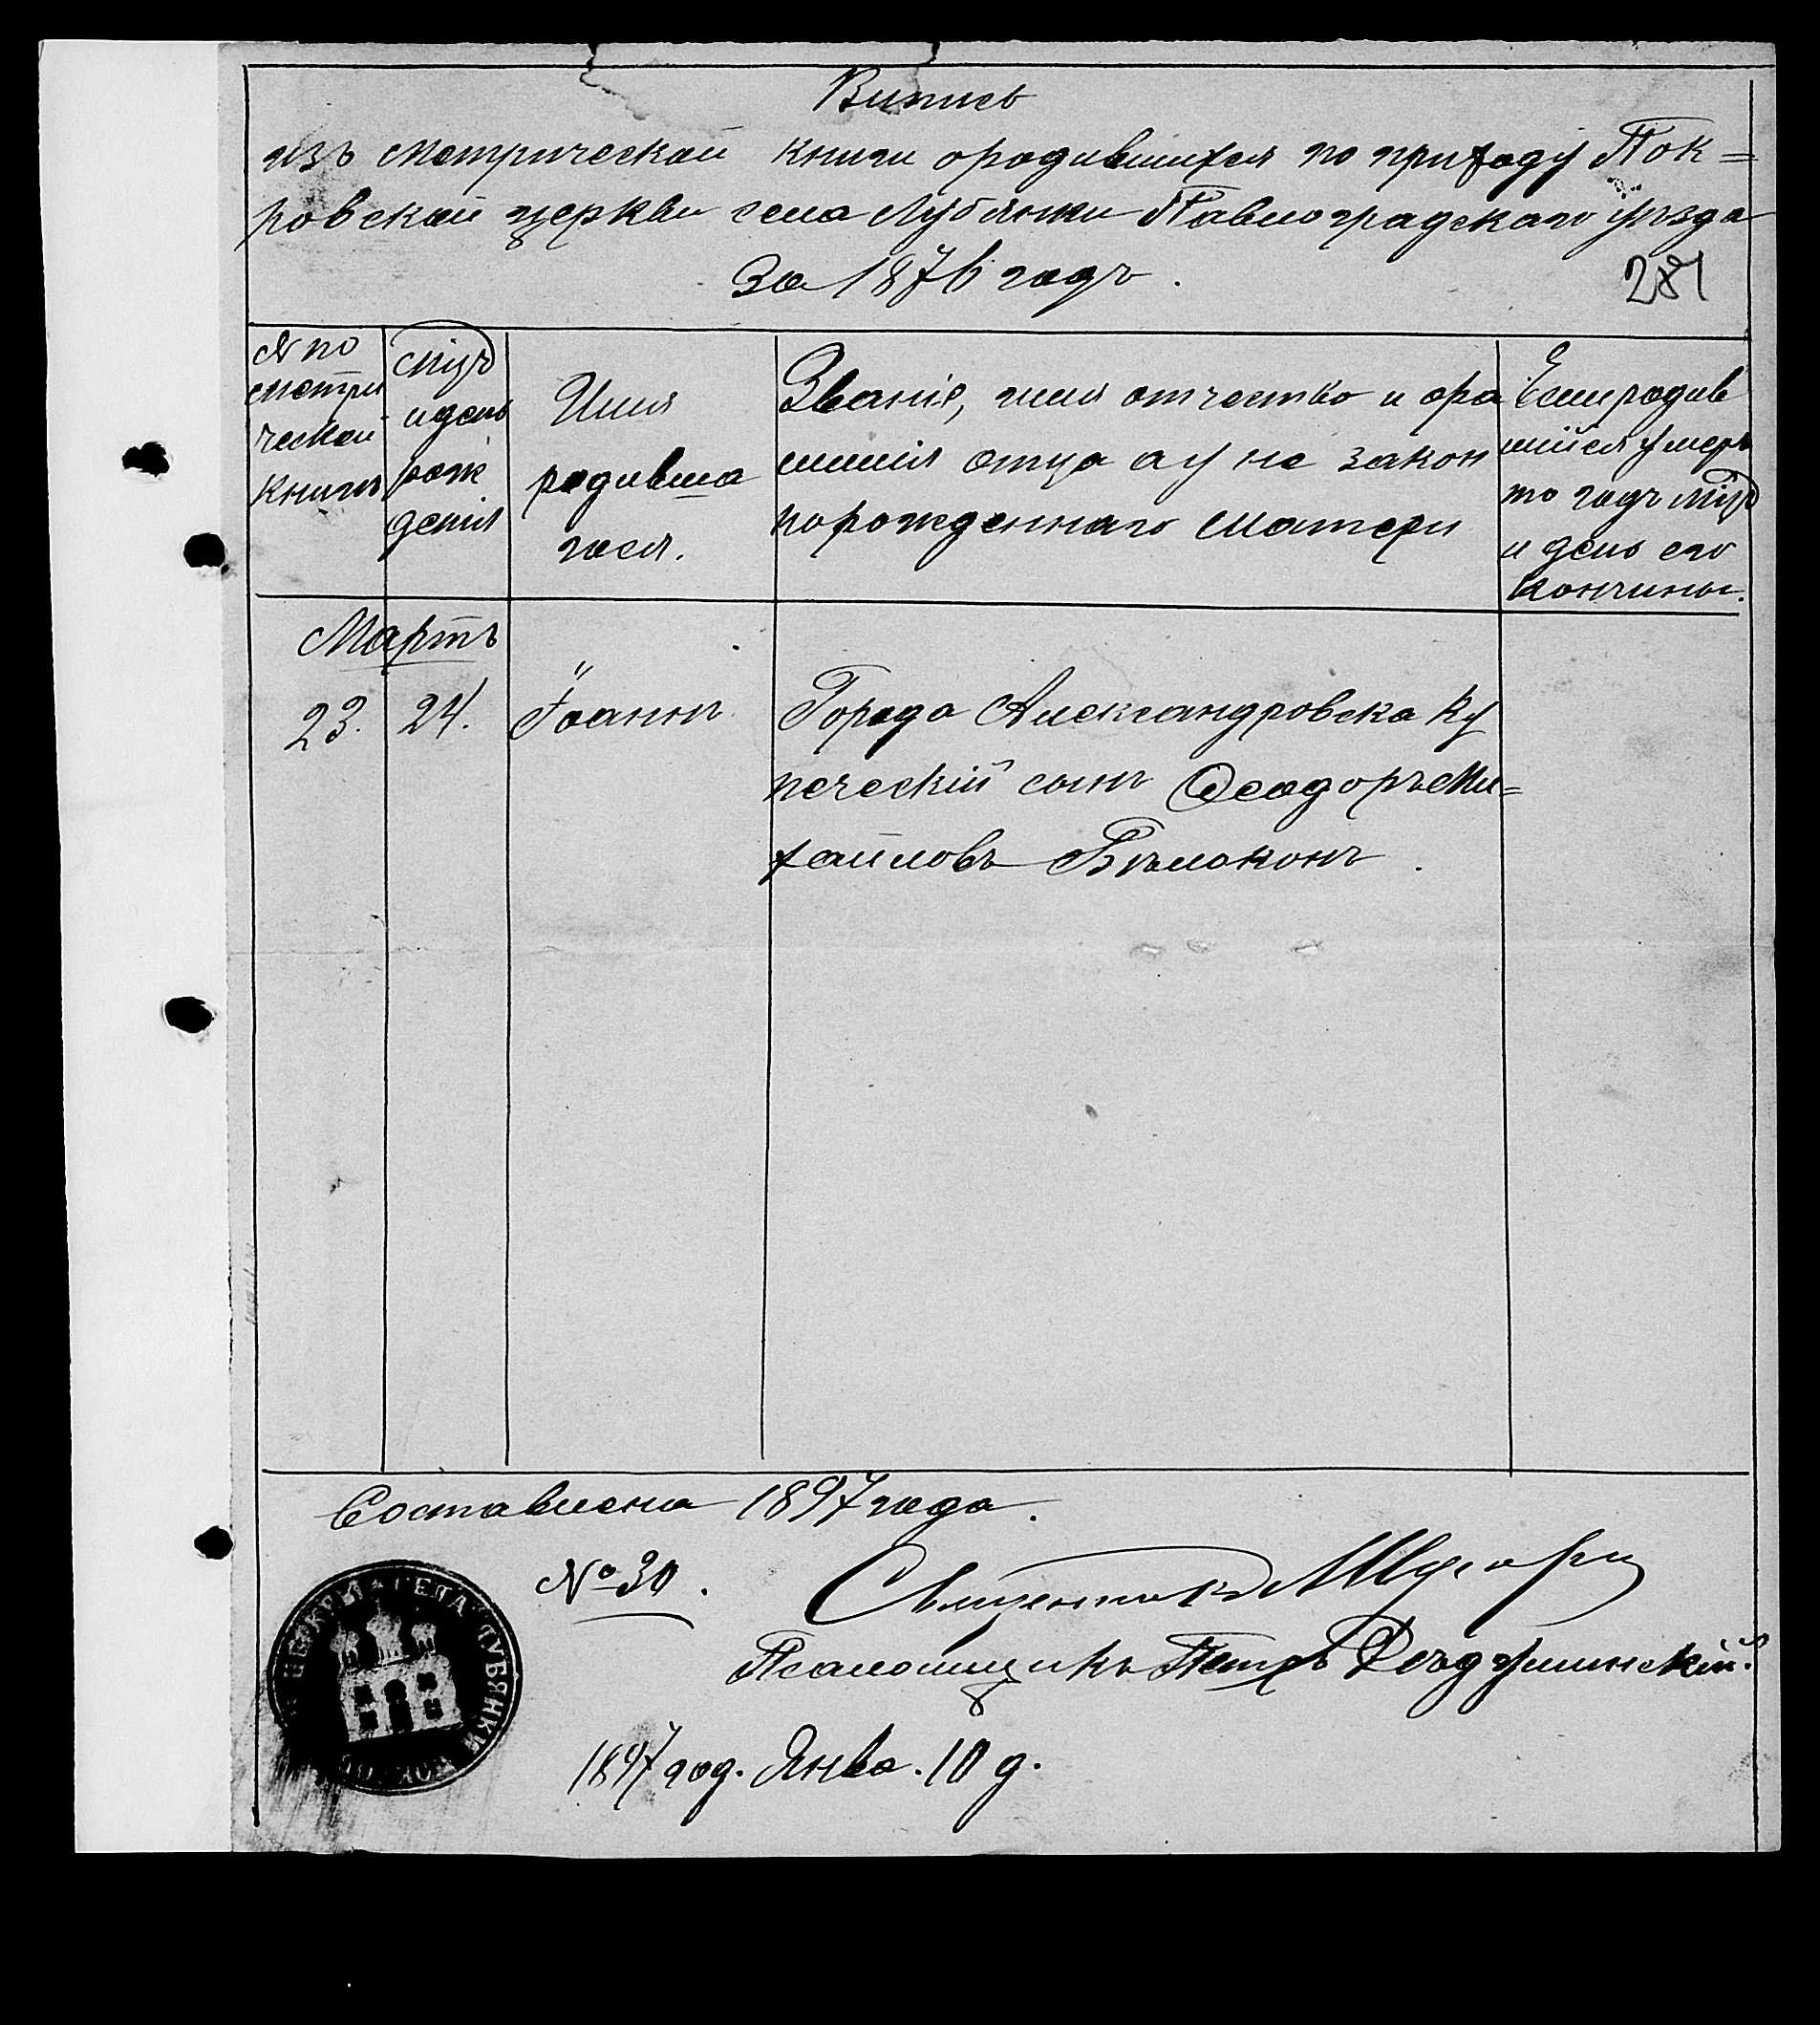 Випись
изъ метрической книги ородившихся по приходу Пок=
ровской церкви села Лубянки Павлоградскаго уѣзда
За 1876 годъ.
281
№ по
метри
ческой
книгѣ
Мѣцъ
и день
рож
денія
Имя
родивша
гося.
Званіе, имя отчество и фра
милія отца а у не закон
норожденнаго матери
Если родив
шійся умеръ
то годъ мѣцъ
и день его
кончины.
Мартъ
23. 24. Іоаннъ
Города Александровска ку
печескій сынъ Ѳеодоръ Ми=
хайловъ Бѣлоконъ.
Составлена 1897 года.
№ 30.
Священникъ
Псаломщикъ Петръ
1897 год. Янва. 10 д.
СЕЛА ЛУБЯНКИ